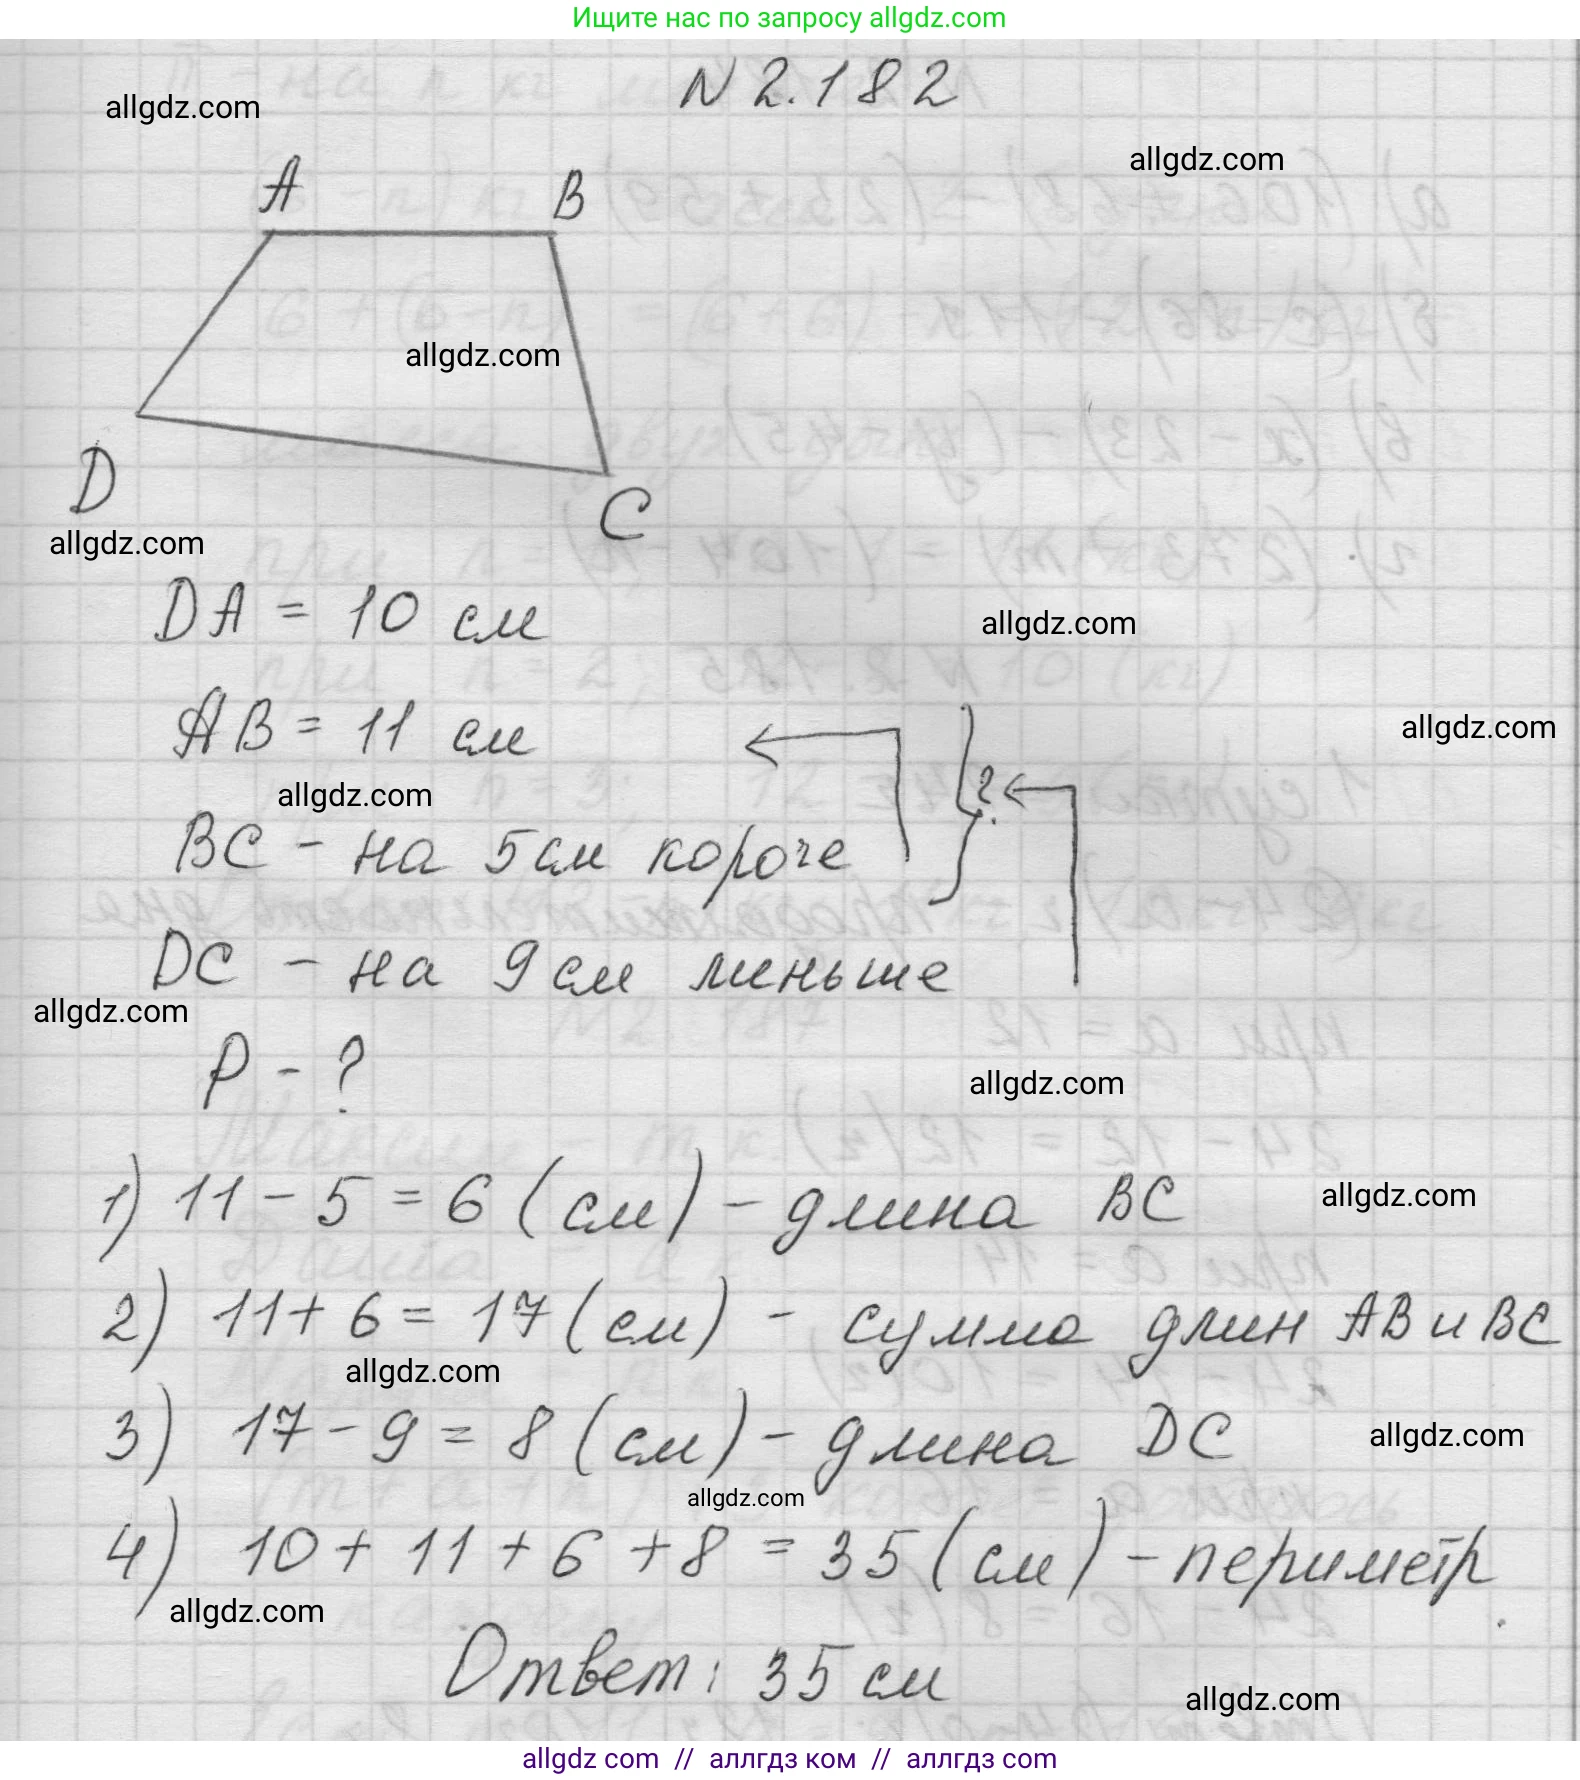 Ищите нас по запросу allgdz.com
N 2.182
allgdz.com
allgdz.com
A
B
allgdz.com
D
C
allgdz.com
DA = 10 см
allgdz.com
AB = 11 см
allgdz.com
?
allgdz.com
BC - на 5 см короче
DC - на 9 см меньше
allgdz.com
P - ?
allgdz.com
1) 11 - 5 = 6 (см) - длина BC
allgdz.com
2) 11 + 6 = 17 (см) - сумма длин AB и BC
allgdz.com
3) 17 - 9 = 8 (см) - длина DC
allgdz.com
allgdz.com
4) 10 + 11 + 6 + 8 = 35 (см) - периметр.
allgdz.com
Ответ: 35 см
allgdz.com
allgdz com // аллгдз ком // аллгдз com